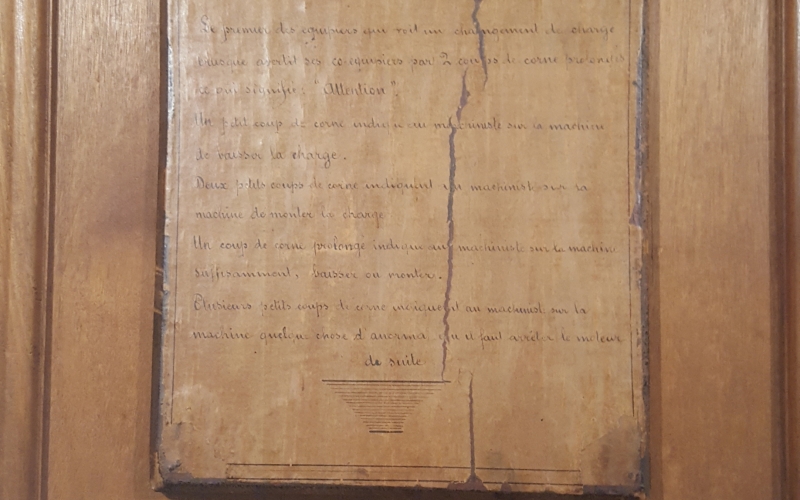 Le premier des équipiers qui voit un changement de charge
brusque avertit ses co-équipiers par 2 coups de corne prolongés
ce qui signifie : "Attention".
Un petit coup de corne indique au machiniste sur la machine
de baisser la charge.
Deux petits coups de corne indiquent au machinist sur la
machine de monter la charge
Un coup de corne prolongé indique au machiniste sur la machine
suffisamment, baisser ou monter.
Plusieurs petits coups de corne indiquent au machinist sur la
machine quelque chose d'anormal, qu'il faut arrêter le moteur
de suite